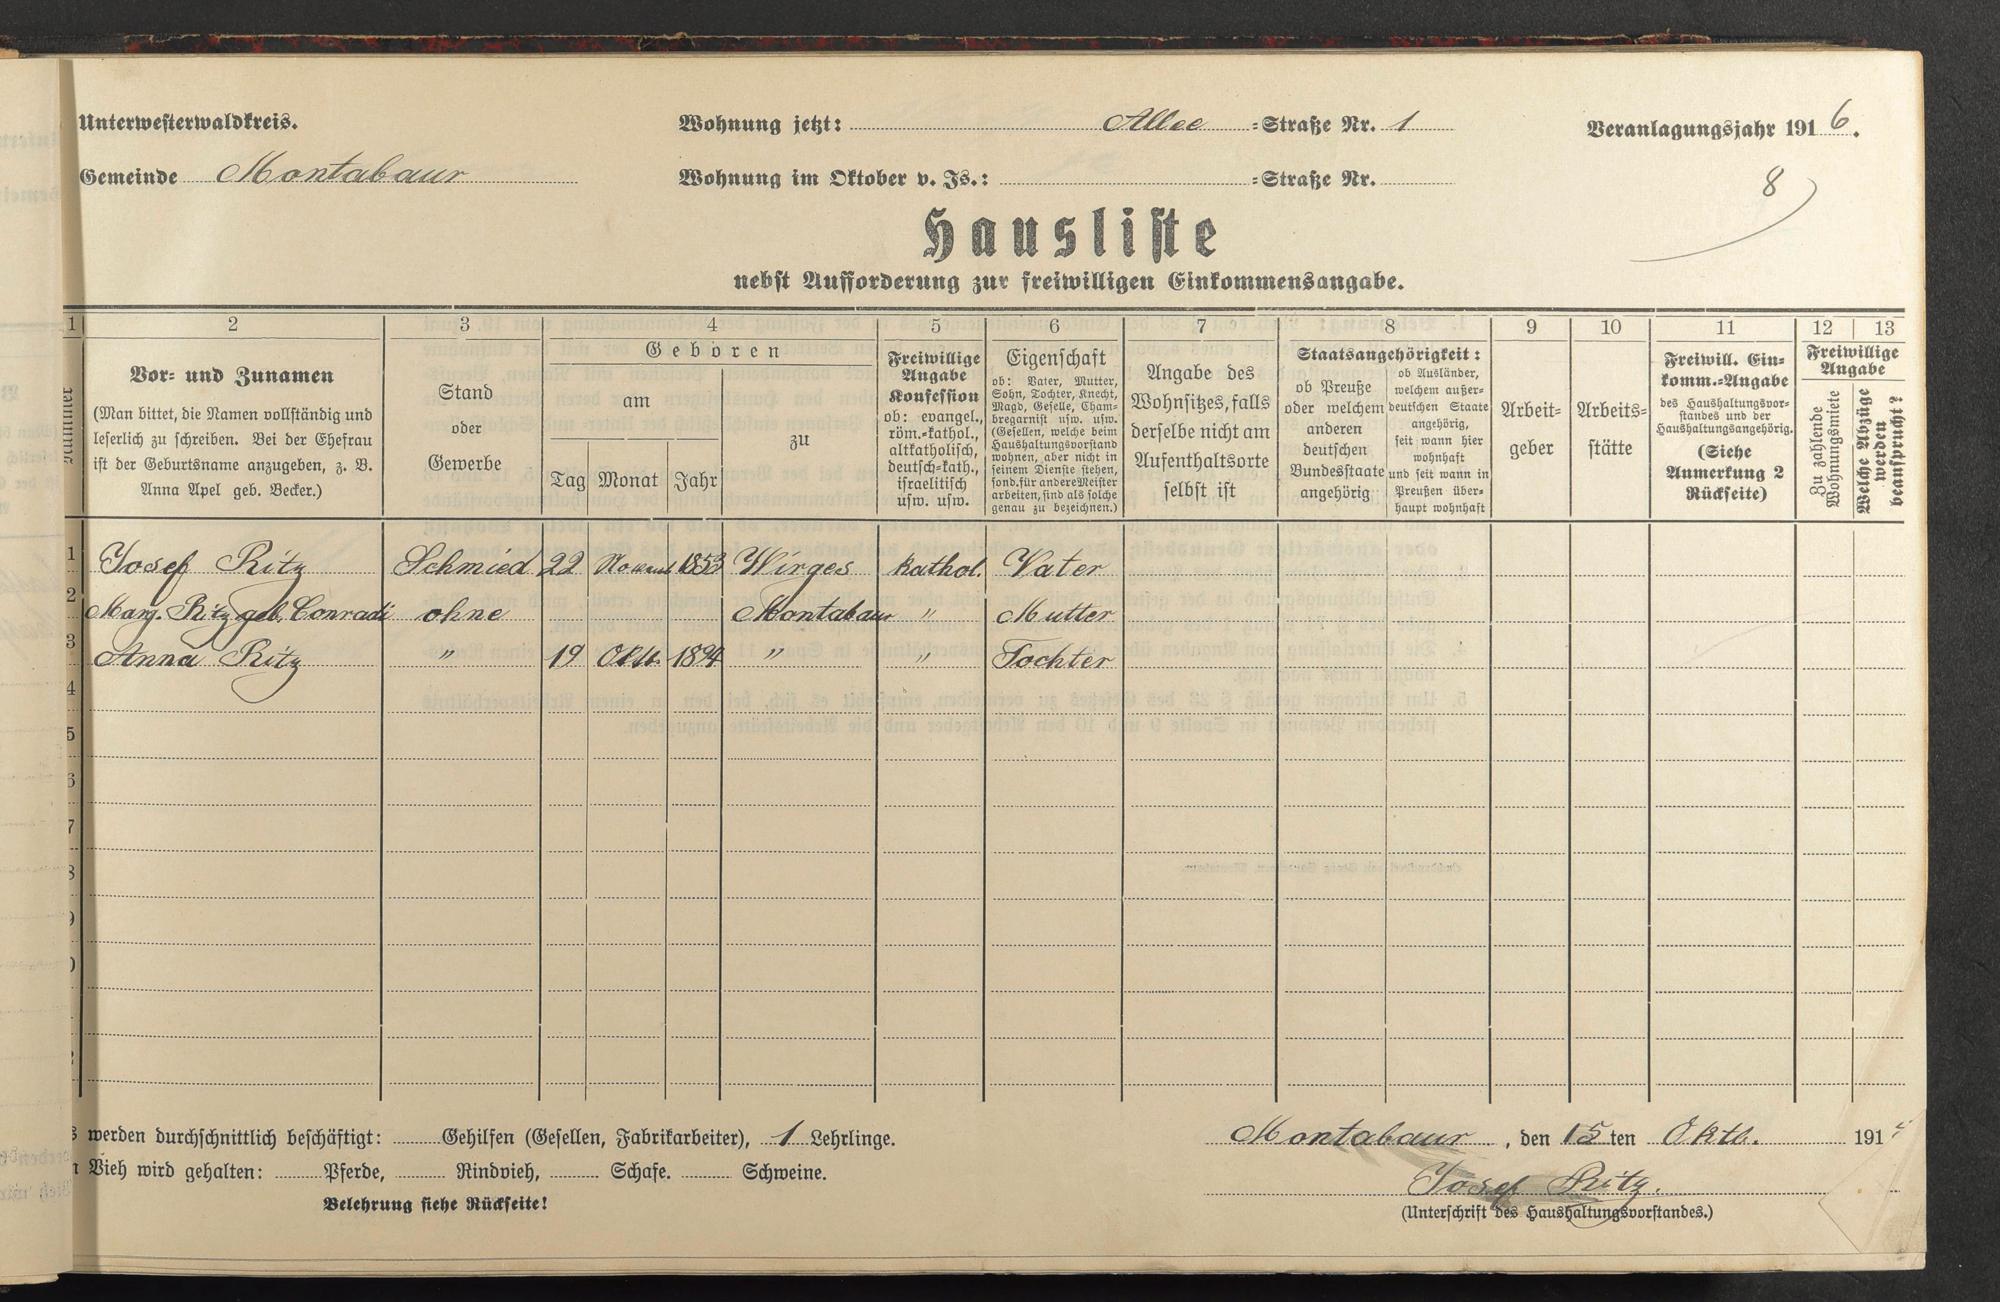 Unterwesterwaldkreis.
Wohnung jetzt: Allee =Straße Nr. 1
Veranlagungsjahr 1916.
Gemeinde Montabaur
Wohnung im Oktober v. Js.: =Straße Nr.
8
Hausliste
nebst Aufforderung zur freiwilligen Einkommensangabe.
1 2 3 4 5 6 7 8 9 10 11 12 13
Vor- und Zunamen
(Man bittet, die Namen vollständig und
leserlich zu schreiben. Bei der Ehefrau
ist der Geburtsname anzugeben, z. B.
Anna Apel geb. Becker.)
Stand
oder
Gewerbe
Geboren
am
Tag Monat Jahr
zu
Freiwillige
Angabe
Konfession
ob: evangel.,
röm.-kathol.,
altkatholisch,
deutsch-kath.,
israelitisch
usw. usw.
Eigenschaft
ob: Vater, Mutter,
Sohn, Tochter, Knecht,
Magd, Geselle, Cham-
bregarnist usw. usw.
(Gesellen, welche beim
Haushaltungsvorstand
wohnen, aber nicht in
seinem Dienste stehen,
sond. für andere Meister
arbeiten, sind als solche
genau zu bezeichnen.)
Angabe des
Wohnsitzes, falls
derselbe nicht am
Aufenthaltsorte
selbst ist
Staatsangehörigkeit:
ob Preuße
oder welchem
anderen
deutschen
Bundesstaate
angehörig
ob Ausländer,
welchem außer-
deutschen Staate
angehörig,
seit wann hier
wohnhaft
und seit wann in
Preußen über-
haupt wohnhaft
Arbeit-
geber
Arbeits-
stätte
Freiwill. Ein-
komm.-Angabe
des Haushaltungsvor-
standes und der
Haushaltungsangehörig.
(Siehe
Anmerkung 2
Rückseite)
Freiwillige
Angabe
Zu zahlende
Wohnungsmiete
Welche Abzüge
werden
beansprucht?
1 Josef Ritz Schmied 22 1853 Wirges kathol. Vater
2 Marg. Ritz geb. Conradi ohne Montabaur " Mutter
3 Anna Ritz " 19 Oktb. 1894 " " Tochter
4
5
6
7
8
9
werden durchschnittlich beschäftigt: Gehilfen (Gesellen, Fabrikarbeiter), 1 Lehrlinge.
Montabaur, den 15 ten Oktb. 191
Vieh wird gehalten: Pferde, Rindvieh, Schafe. Schweine.
Josef Ritz.
Belehrung siehe Rückseite!
(Unterschrift des Haushaltungsvorstandes.)